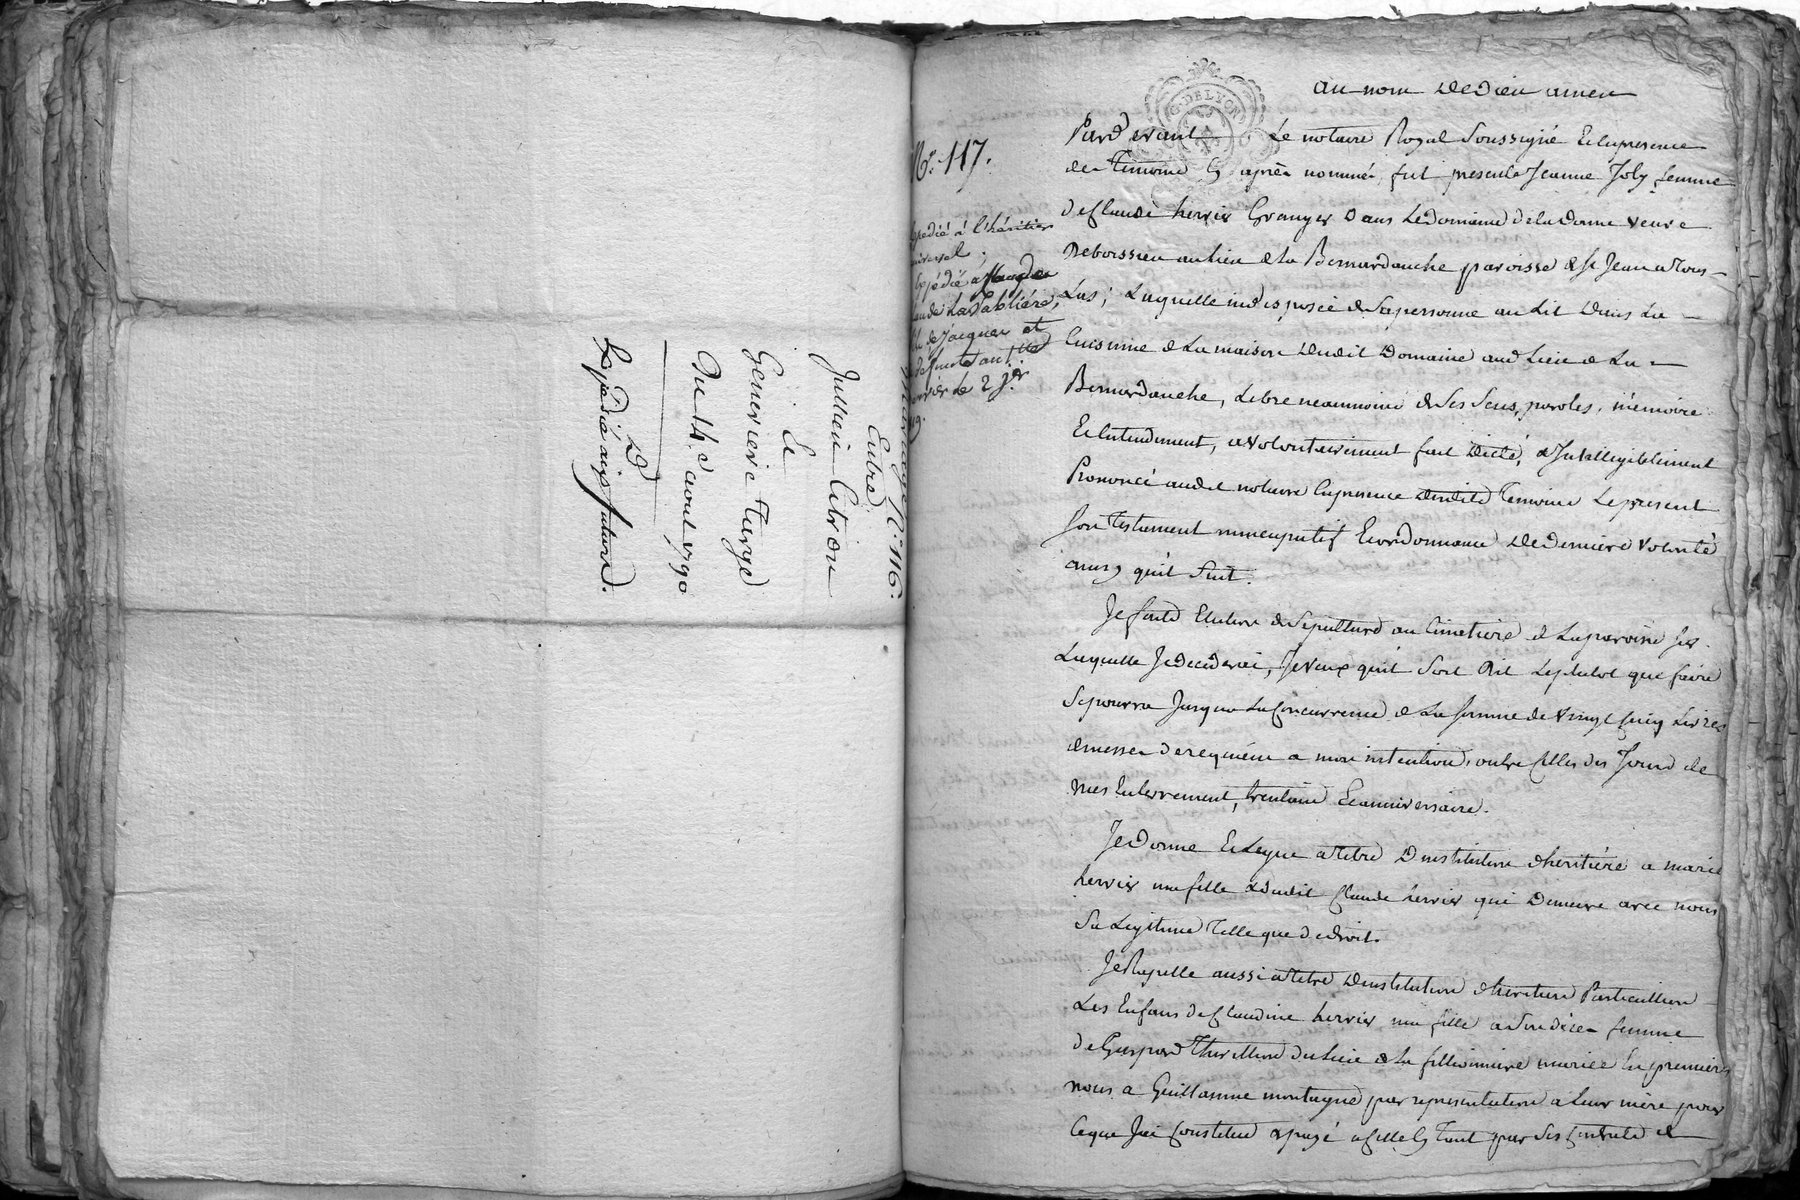 Mariage N.° 116.
Entre
Jullien Citron
Et
Genevieve Turge
Du 14.e aout 1790
Expédié aux futurs.
N.° 117.
expedié à l'héritier
universel.
Expédié à
de Jacques et
le 2 j.er
G. DE LYON
au nom de Dieu amen
Pard'evant Le notaire Royal Soussigné Et en presence
des Temoins cy après nommés, fut presente Jeanne Joly femme
de Claude hervier Granger dans Le domaine de la dame veuve
Deboissieu au lieu de la Bernardanche paroisse de st Jean a Tous-
Las; Laquelle indisposée de sa personne au Lit Dans La
Cuisinne de La maison dudit Domaine aud Lieu de La
Bernardanche, Libre neanmoins de Ses Sens, paroles, mémoire
Et Entendement, a volontairement fait Dicté, & Intelligiblement
Prononcé audit notaire En presence desdits Temoins Le present
Son Testament nuncupatif Et ordonnance De derniere volonté
ainsy qu'il Suit.
Je faits Election de Sepulture au Cimetiere de La paroisse Sur
Laquelle Je decederai, Je veux qu'il Soit Dit Le plutot que faire
Se pourra Jusqua La Concurrence de La Somme de vingt Cinq Livres
de messes de requiem a mon intention, outre Celles des Jours de
mes Enterrement, trentaine Et anniversaire.
Je Donne Et Legue a titre D'institution d'heritiere a marie
hervier ma fille & dudit Claude hervier qui Demeure avec nous
Sa Legitime Telle que de droit.
Je Rapelle aussi a titre D'institution d'heritiers Particuliers
Les Enfans de Claudine hervier ma fille a Son déces femme
de Gaspard Thivillion du Lieu de la fillionniere mariée En premiers
nous a Guillaume montagne par representation a Leur mère pour
Ce que J'ai Constitué & payé a Celle Cy Tant par Ses Contrats de